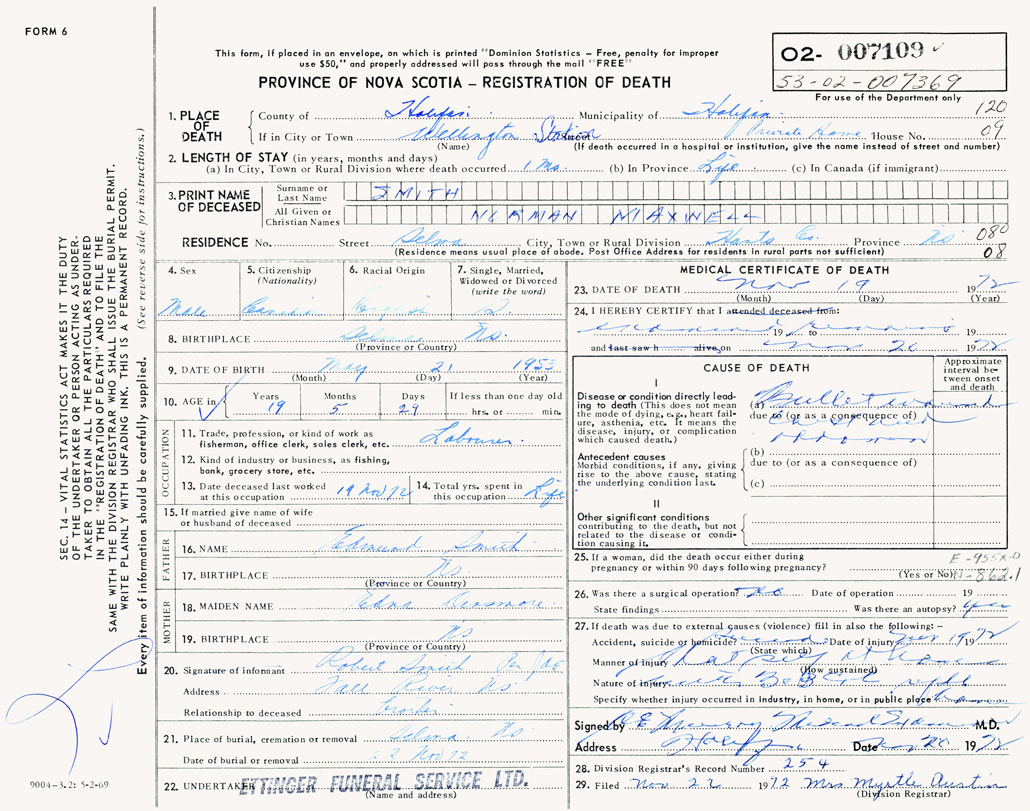 FORM 6
This form, if placed in an envelope, on which is printed "Dominion Statistics – Free, penalty for improper
use $50," and properly addressed will pass through the mail "FREE"
PROVINCE OF NOVA SCOTIA – REGISTRATION OF DEATH
02- 007109
53-02-007369
For use of the Department only
120
09
1. PLACE OF DEATH
County of Halifax Municipality of Halifax
If in City or Town Wellington Station Street Private Home House No.
(Name) (If death occurred in a hospital or institution, give the name instead of street and number)
2. LENGTH OF STAY (in years, months and days)
(a) In City, Town or Rural Division where death occurred 1 Mo. (b) In Province Life (c) In Canada (if immigrant)
3. PRINT NAME OF DECEASED
Surname or Last Name SMITH
All Given or Christian Names NORMAN MAXWELL
RESIDENCE No. Street Selma City, Town or Rural Division Hants Co. Province NS 080
(Residence means usual place of abode. Post Office Address for residents in rural parts not sufficient) 08
4. Sex Male
5. Citizenship (Nationality) Canadian
6. Racial Origin English
7. Single, Married, Widowed or Divorced (write the word) S.
8. BIRTHPLACE Selma NS.
(Province or Country)
9. DATE OF BIRTH May 21 1953
(Month) (Day) (Year)
10. AGE in Years 19 Months 5 Days 29 If less than one day old hrs. or min.
OCCUPATION
11. Trade, profession, or kind of work as fisherman, office clerk, sales clerk, etc. Labourer.
12. Kind of industry or business, as fishing, bank, grocery store, etc.
13. Date deceased last worked at this occupation 19 Nov 72
14. Total yrs. spent in this occupation Life
15. If married give name of wife or husband of deceased
FATHER
16. NAME Edmund Smith
17. BIRTHPLACE NS.
(Province or Country)
MOTHER
18. MAIDEN NAME Edna Densmore
19. BIRTHPLACE NS
(Province or Country)
20. Signature of informant Robert Smith Per
Address Fall River NS.
Relationship to deceased brother
21. Place of burial, cremation or removal Selma NS.
Date of burial or removal Nov 72
22. UNDERTAKER ETTINGER FUNERAL SERVICE LTD.
(Name and address)
MEDICAL CERTIFICATE OF DEATH
23. DATE OF DEATH Nov 19 1972
(Month) (Day) (Year)
24. I HEREBY CERTIFY that I attended deceased from:
examined remains 19 to 19
and last saw h alive, on Nov 20 1972
CAUSE OF DEATH
Approximate interval between onset and death
I
Disease or condition directly leading to death (This does not mean the mode of dying, e.g., heart failure, asthenia, etc. It means the disease, injury, or complication which caused death.)
(a) Bullet wound
due to (or as a consequence of)
chest and
abdomen
Antecedent causes
Morbid conditions, if any, giving rise to the above cause, stating the underlying condition last.
(b)
due to (or as a consequence of)
(c)
II
Other significant conditions contributing to the death, but not related to the disease or condition causing it.
25. If a woman, did the death occur either during pregnancy or within 90 days following pregnancy? (Yes or No)
E-955X-0
N-862.1
26. Was there a surgical operation? No Date of operation 19
State findings Was there an autopsy? Yes
27. If death was due to external causes (violence) fill in also the following: –
Accident, suicide or homicide? Date of injury Nov 19 1972
(State which)
Manner of injury Shot self at home
(How sustained)
Nature of injury with 303 Cal rifle
Specify whether injury occurred in industry, in home, or in public place home
Signed by Murray Medical Examiner M.D.
Address Halifax Date Nov 20 1972
28. Division Registrar's Record Number 254
29. Filed Nov 22 1972 Mrs Myrtle Austin
(Division Registrar)
SEC. 14 – VITAL STATISTICS ACT MAKES IT THE DUTY
OF THE UNDERTAKER OR PERSON ACTING AS UNDER-
TAKER TO OBTAIN ALL THE PARTICULARS REQUIRED
IN THE "REGISTRATION OF DEATH" AND TO FILE THE
SAME WITH THE DIVISION REGISTRAR WHO SHALL ISSUE THE BURIAL PERMIT.
WRITE PLAINLY WITH UNFADING INK. THIS IS A PERMANENT RECORD.
Every item of information should be carefully supplied. (See reverse side for instructions.)
9004-3.2: 5-2-69